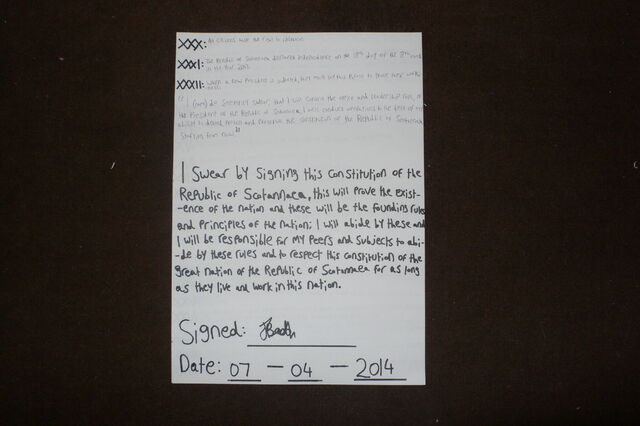 XXX: All citizens have the right to
XXXI: The Republic of Scotannaea declared independence on the day of the
in the year
XXXII: When a new President is they must
"I (name) do solemnly swear, that I will the office and leadership role, of
the President of the Republic of Scotannaea, I will to the best of my
ability to defend, protect and preserve the constitution of the Republic of Scotannaea
starting from now."
I Swear by signing this constitution of the
Republic of Scotannaea, this will prove the exist-
-ence of the nation and these will be the founding rules
and principles of the nation; I will abide by these and
I will be responsible for my peers and subjects to abi-
-de by these rules and to respect this constitution of the
great nation of the Republic of Scotannaea for as long
as they live and work in this nation.
Signed:
Date: 07 - 04 - 2014